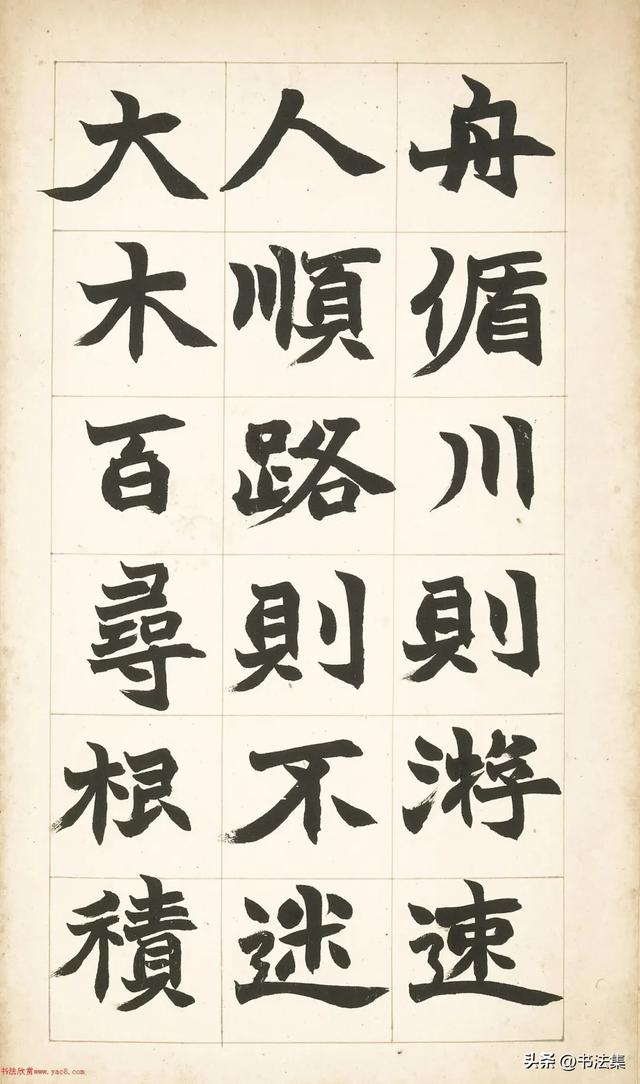 舟循川則游速
人順路則不迷
大木百尋根積
书法欣赏www.yac8.com
头条@书法集